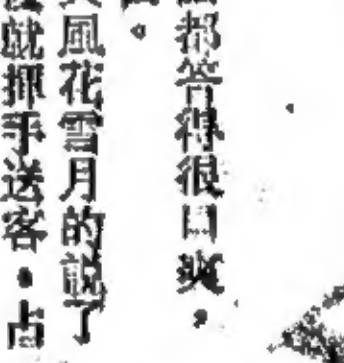 都答得很口爽，
風花雪月的說了
就揮手送客・占